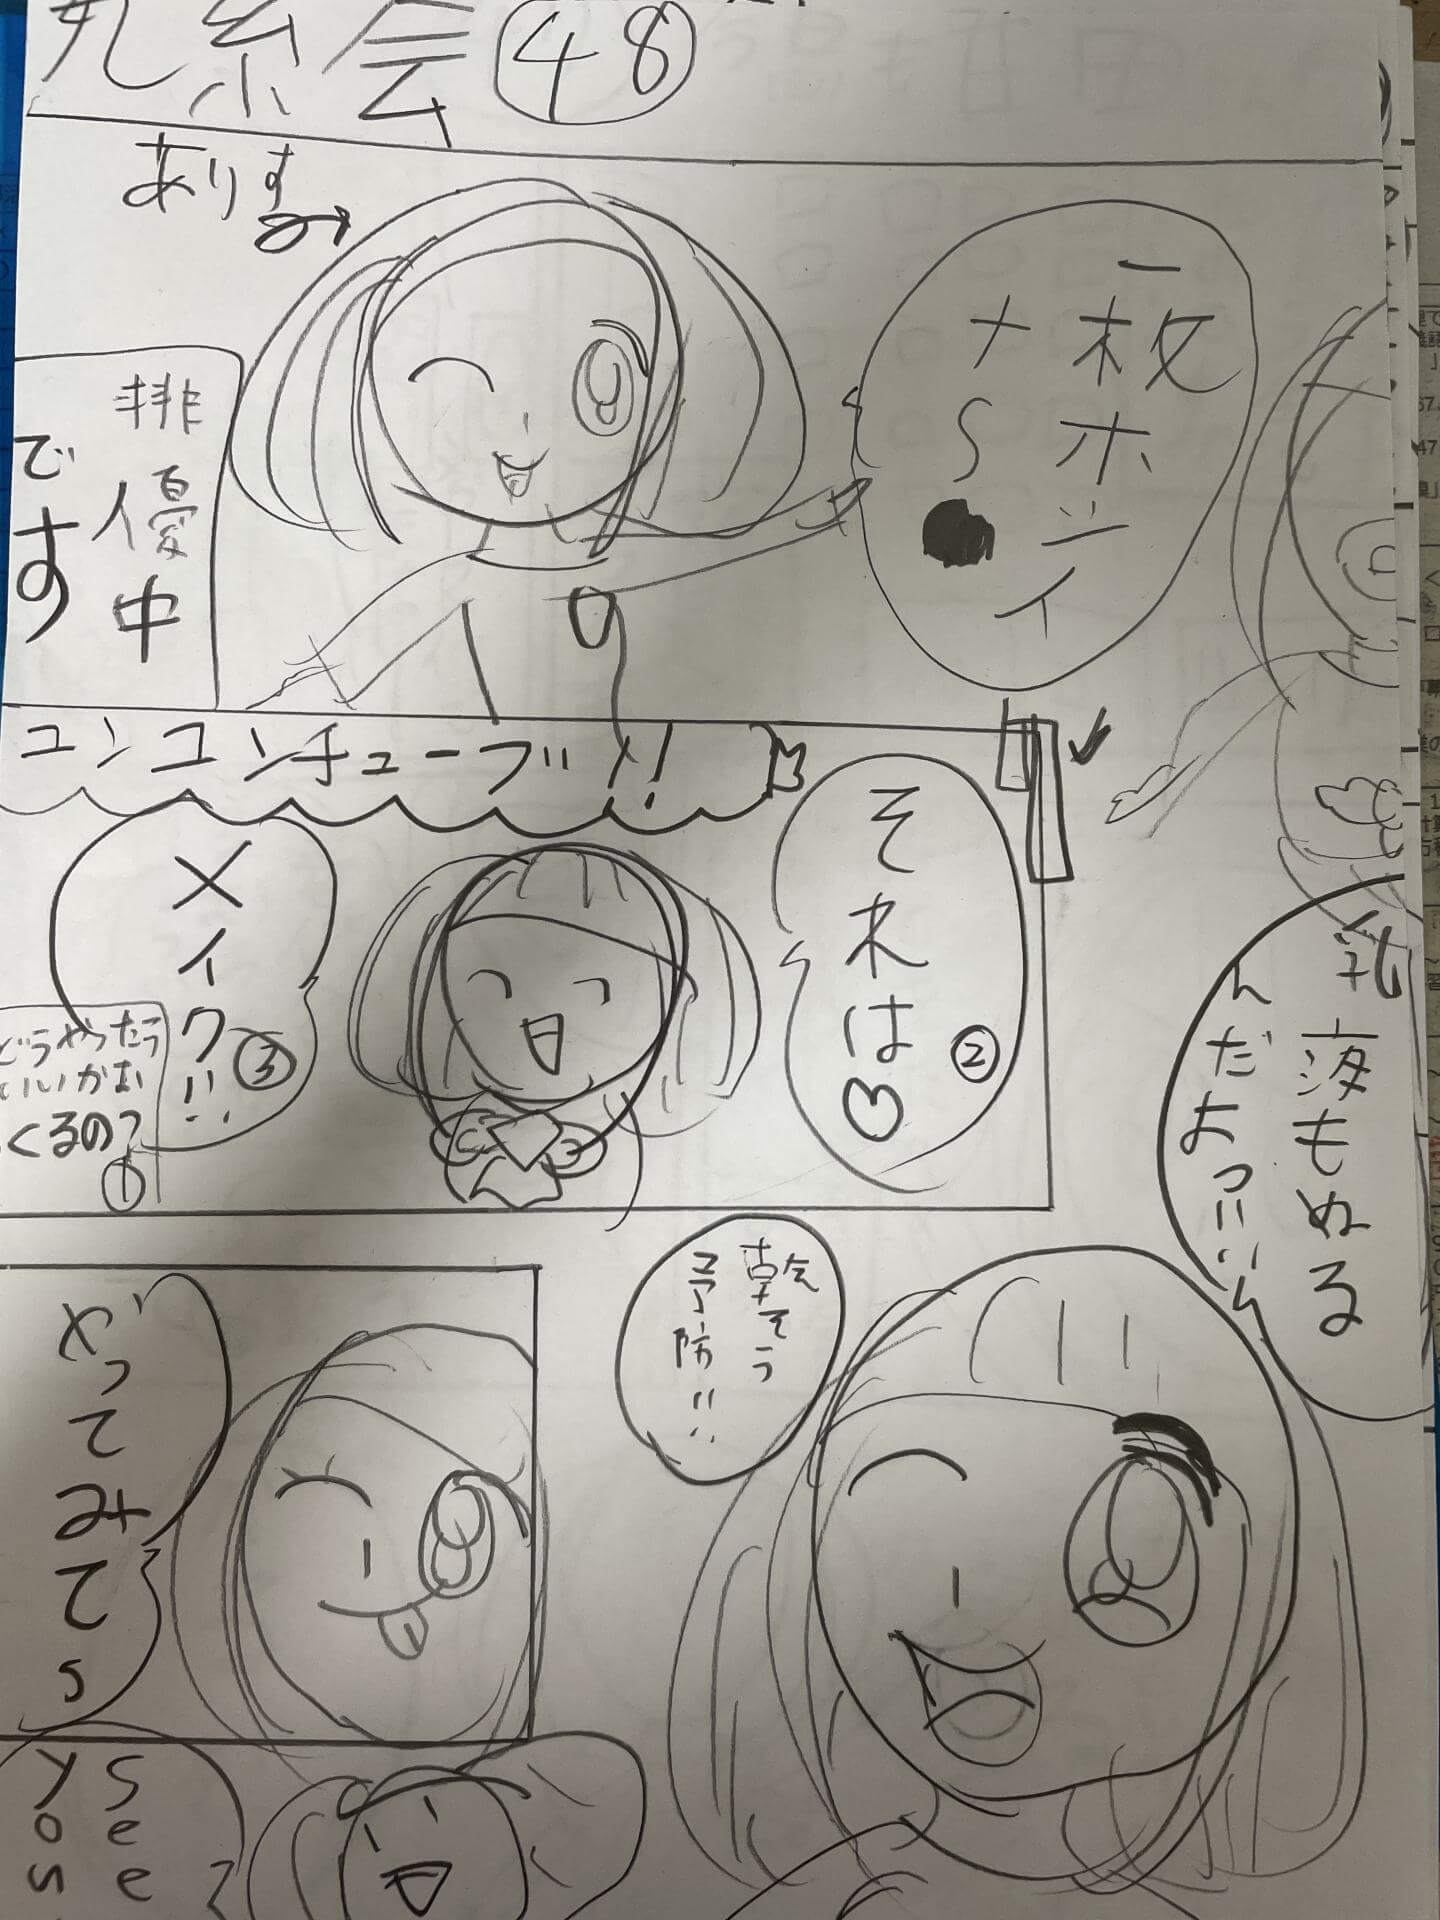 糸会 48
ありす
一枚ホシイ
ナS
排優中
です
ユンユンチューブ!!
それは
②
メイク!!
③
どうやったら
いいかお
くるの?
①
乳液もぬる
んだよっ!!
乾そう
予防!!
やってみてs
See
you